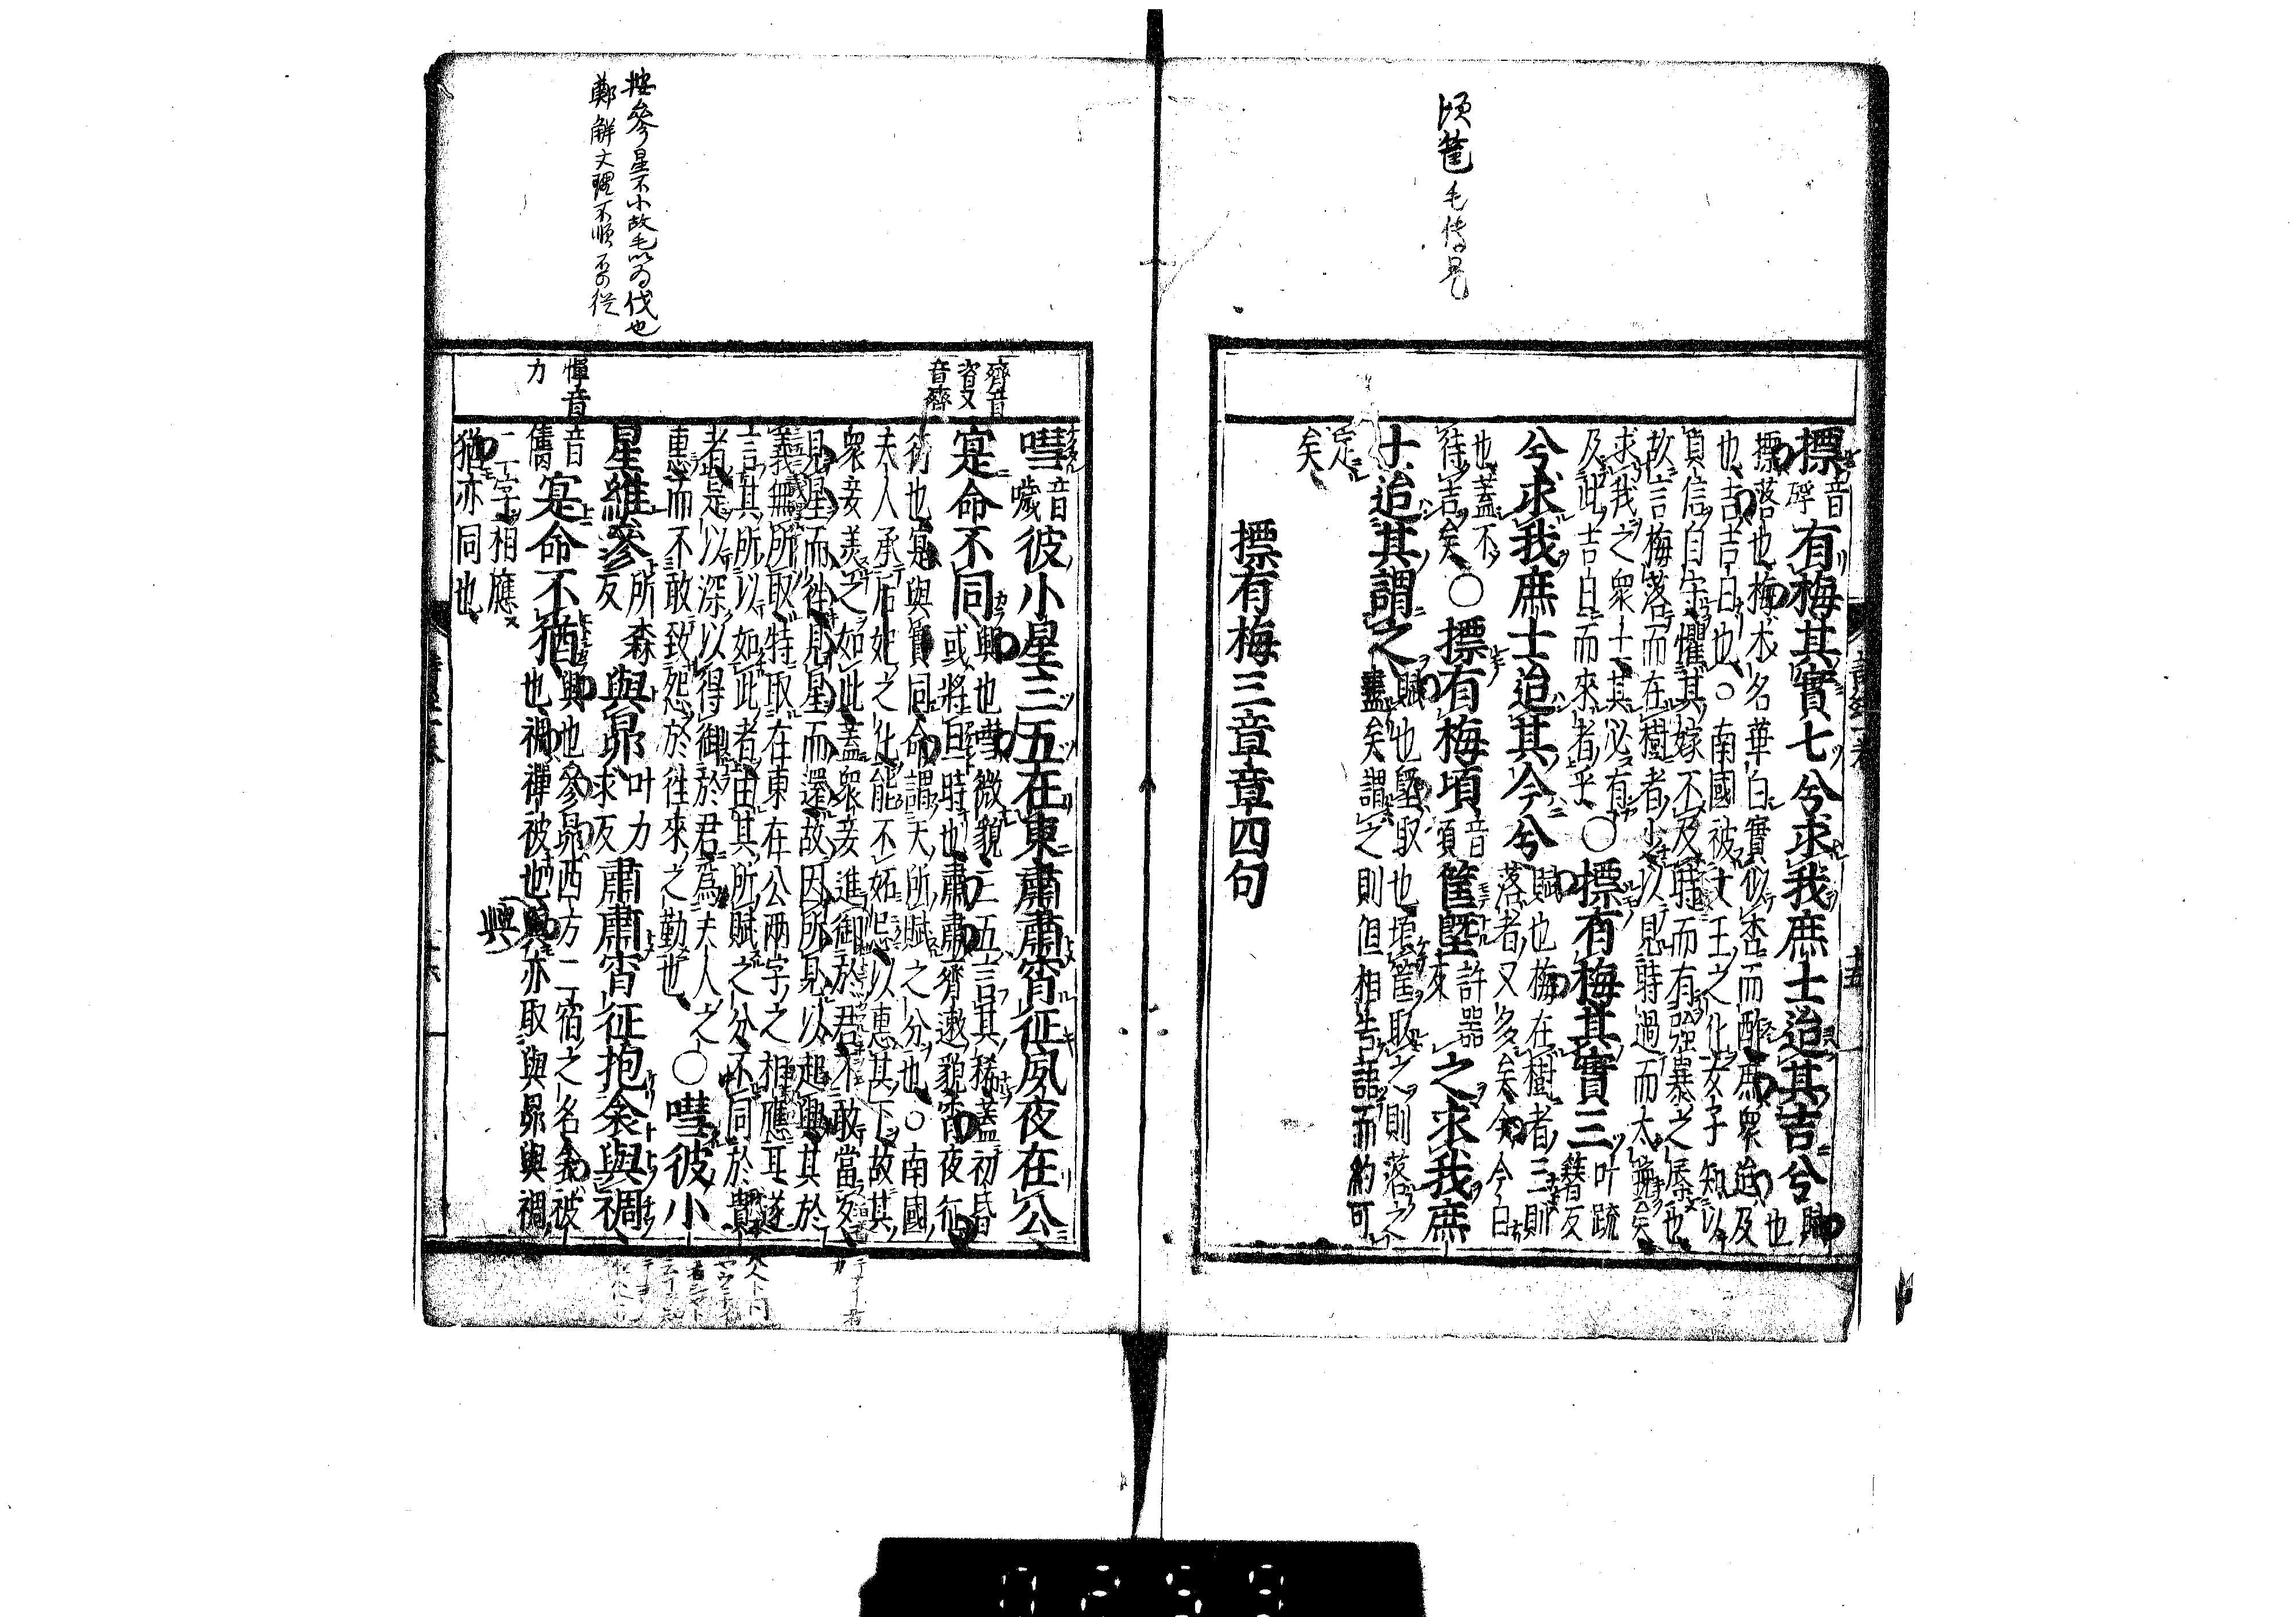 頃筐毛傳是
摽音殍有梅其實七兮求我庶士迨其吉兮賦也
摽落也梅木名華白實似杏而酢庶衆迨及
也吉吉日也○南國被文王之化女子知以
貞信自守懼其嫁不及時而有強暴之辱也
故言梅落而在樹者少以見時過而太晚矣
求我之衆士其必有
及此吉日而來者乎○摽有梅其實三叶疏簪反
兮求我庶士迨其今兮賦也梅在樹者三則落者又多矣今今日
也蓋不
待吉矣○摽有梅頃音傾筐墍許器之求我庶
士迨其謂之賦也墍取也頃筐取之則落之盡矣謂之則但相告語而約可
定
矣
摽有梅三章章四句
按參星不小故毛以為伐也
鄭解文理不順不可從
齊音
資又
音齊
嘒音嘒彼小星三五在東肅肅宵征夙夜在公
寔命不同興也嘒微貌三五言其稀蓋初昏或將旦時也肅肅齊遫貌宵夜征
行也寔與實同命謂天所賦之分也○南國
夫人承后妃之化能不妬忌以惠其下故其
衆妾美之如此蓋衆妾進御於君不敢當夕
見星而往見星而還故因所見以起興其於
義無所取特取在東在公兩字之相應耳遂
言其所以如此者由其所賦之分不同於貴
者是以深以得御於君爲夫人之
惠而不敢致怨於往來之勤也○嘒彼小
星維參所森反與昴叶力求反肅肅宵征抱衾與裯
惲音
力
音儔寔命不猶興也參昴西方二宿之名衾被也裯襌被也興亦取與昴與裯
興
二字相應
猶亦同也